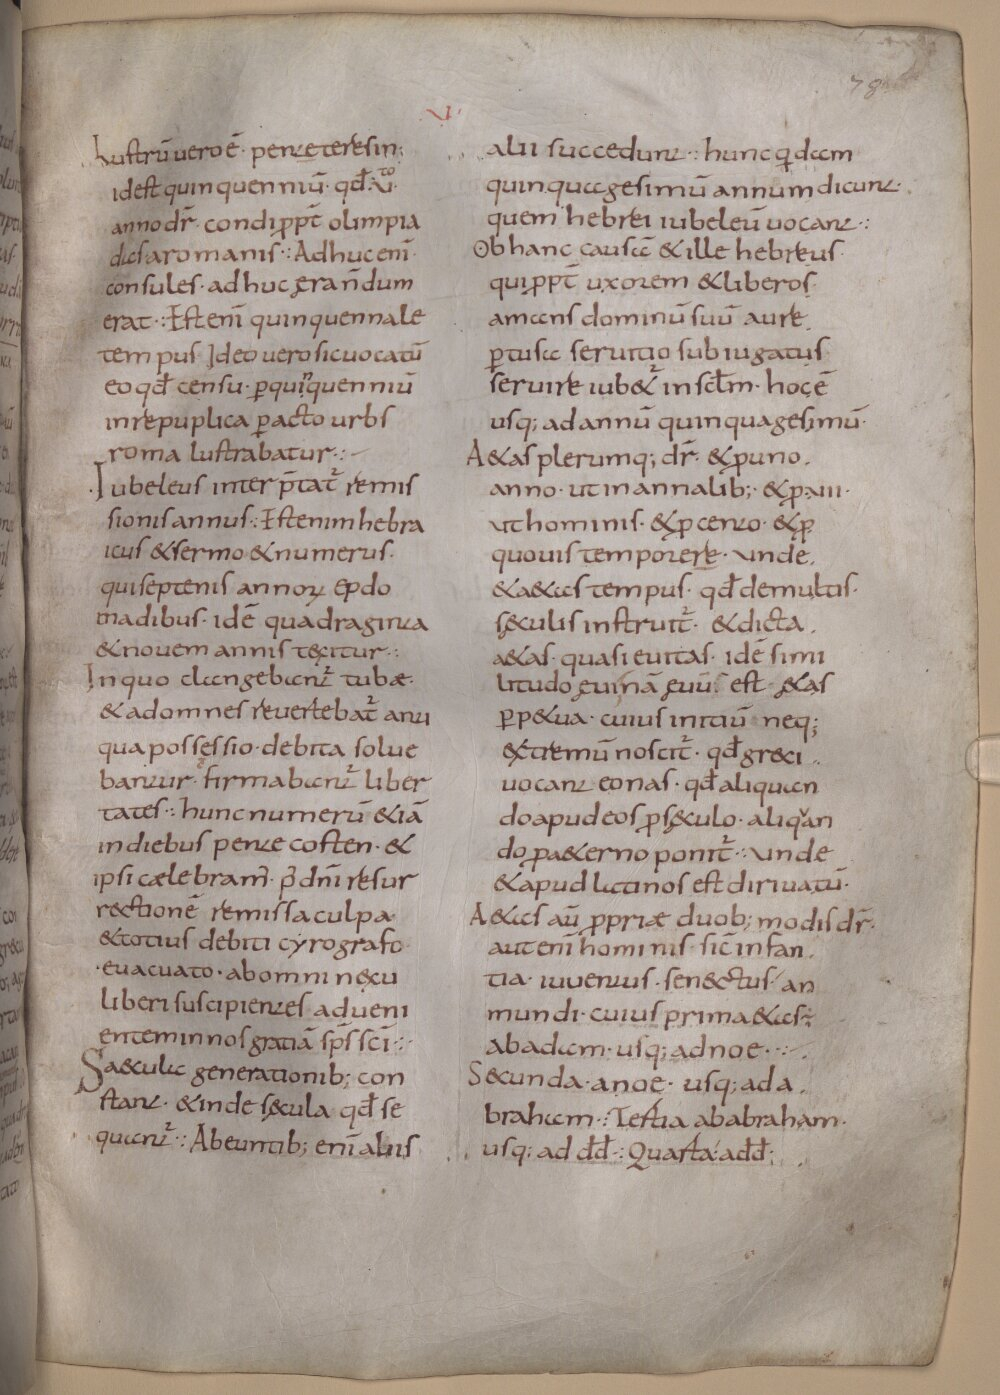 78
VI
Lustrū uero ē · penteteresin;
idest quinquenniū · qđ IIIIto
anno dr̄ · condi ꝓpt̄ olimpia
das aromanis ·:· Adhuc enī·
consules · adhuc gerañdum
erat ·:· Est enī quinquennale
tempus Ideo uero sic uocatū
eo qđ censu · ꝑquinquenniū
inrepuplica ꝑacto urbs
roma lustrabatur ·:·
Iubeleus inter p̄tat᷑ remis
sionis annus ·:· Est enim hebra
icus & sermo & numerus·
qui septenis annoꝝ epdo
madibus · idē quadraginta
& nouem annis texitur ·:·
In quo clangebant᷑ tubæ·
& ad omnes reuertebat᷑ anti
qua possessio · debita solue
bantur · firmabant᷑ liber
tates ·:· hunc numerū & iā
in diebus pente costen · &
ipsi cælebram̄ · p̄ dn̄i resur
rectionē remissa culpa
& totius debiti cyrografo
·euacuato · ab omni nexu
liberi suscipientes adueni
entem in nos gratiā sp̄s sc̄i ·:·
Saecula generationib; con
stant · & inde sęcula qđ se
quant᷑ ·:· Abeuntib; enī aliis
alii succedunt ·:· hunc qidam
quinquagesimū annum dicunt·
quem hebrei iubeleū uocant ·:
Ob hanc causā & ille hebreus·
qui ꝓpt̄ uxorem & liberos·
amans dominū suū aure
ꝑtusa seruitio subiugatus·
seruire iubet᷑ in scl̄m · hoc ē
usq; ad annū quinquagesimū·
A&as plerumq; dr̄ · & ꝓ uno
anno · ut in annalib; · & ꝓ uii·
ut hominis · & ꝓ cento · & ꝓ
quouis temporere · unde
& a&as tempus · qđ de multis·
sęculis instruit᷑ · & dicta
a&as · quasi euitas · idē simi
litudo euinā euū est · &as
ꝑp&ua · cuius initiū neq;
extremū noscit᷑ · qđ greci
uocant eonas · qđ aliquan
do apud eos ꝓ sęculo · aliqan
do ꝓ a&erno ponit᷑ ·:· unde
& apud latinos est diriuatū·
A&as aū ꝓpriæ duob; modis dr̄·
aut enī hominis · sic̄ infan
tia · iuuentus · senectus / an
mundi · cuius prima &as ·:·
ab adam · usq; ad noe ·:·
Secunda · a noe · usq; ad a
braham ·:· Tertia ab abraham·
usq; ad dđ ·:· Quarta · a dđ ·